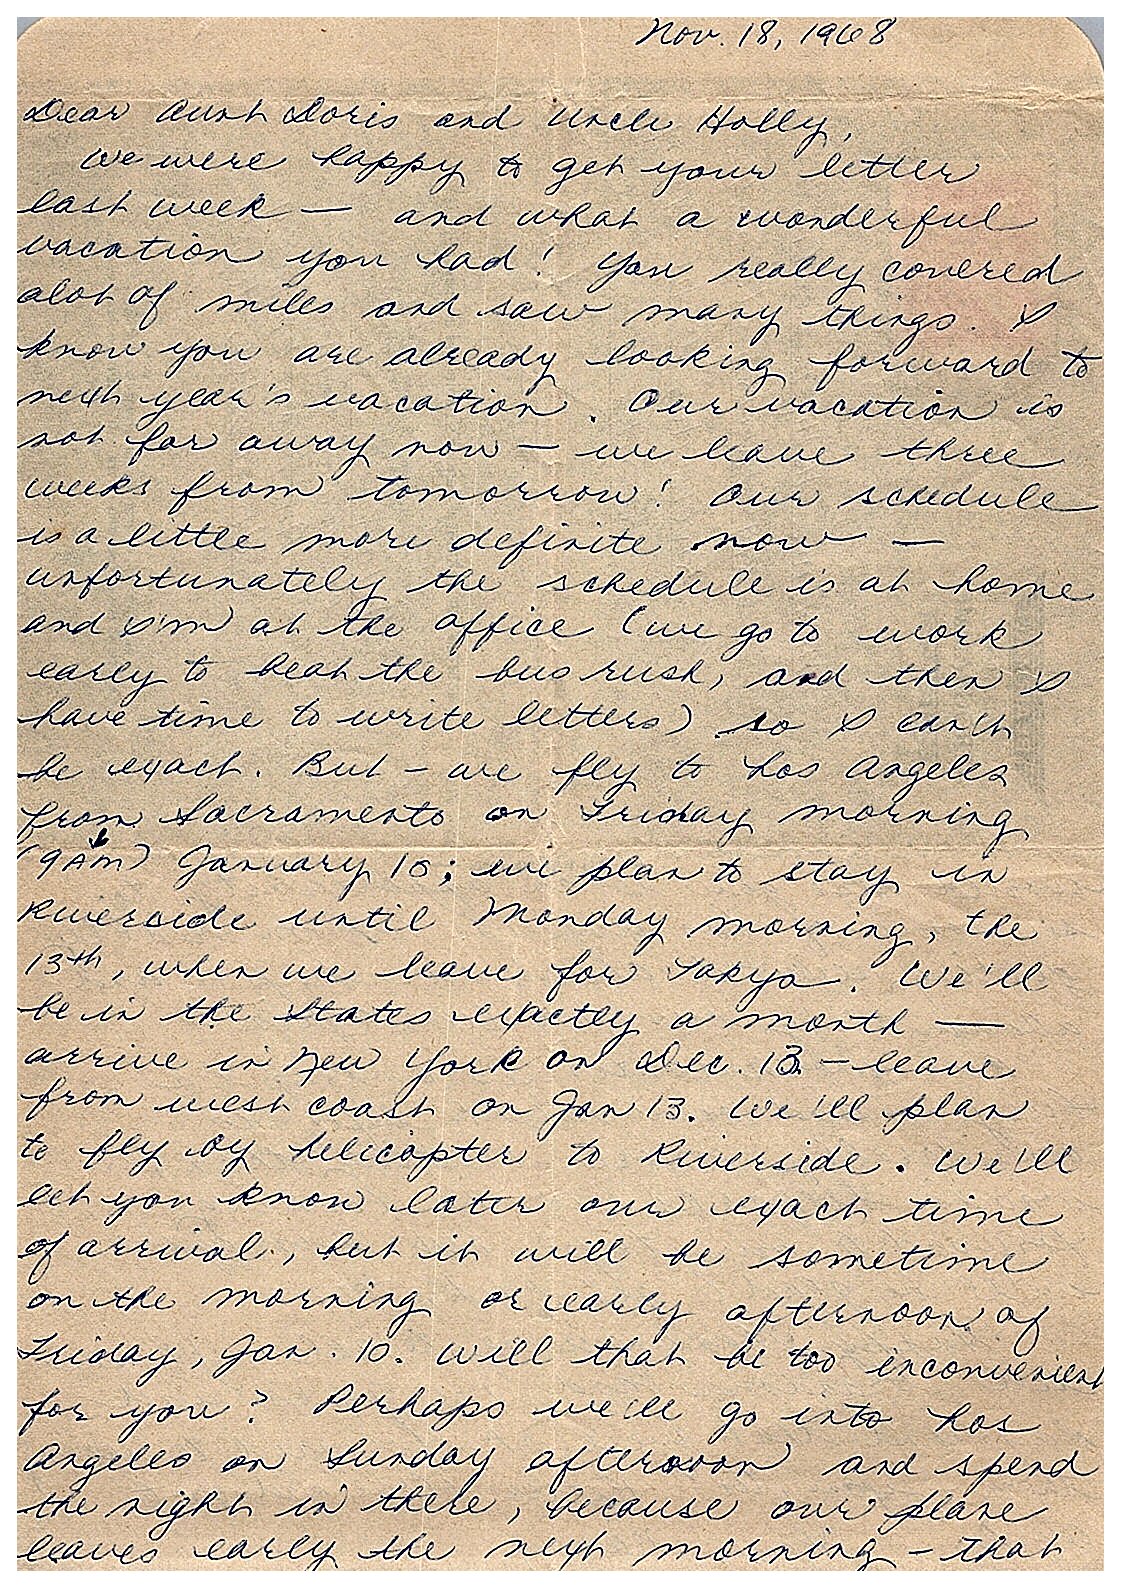 Nov. 18, 1968
Dear Aunt Doris and Uncle Holly,
We were happy to get your letter
last week — and what a wonderful
vacation you had! You really covered
alot of miles and saw many things. I
know you are already looking forward to
next year's vacation. Our vacation is
not far away now — we leave three
weeks from tomorrow! Our schedule
is a little more definite now —
unfortunately the schedule is at home
and I'm at the office (we go to work
early to beat the bus rush, and then I
have time to write letters) so I can't
be exact. But – we fly to Los Angeles
from Sacramento on Friday morning
(9AM) January 10; we plan to stay in
Riverside until Monday morning, the
13th, when we leave for Tokyo. We'll
be in the States exactly a month —
arrive in New York on Dec. 13 – leave
from west coast on Jan 13. We'll plan
to fly by helicopter to Riverside. We'll
let you know later our exact time
of arrival, but it will be sometime
on the morning or early afternoon of
Friday, Jan. 10. Will that be too inconvenient
for you? Perhaps we'll go into Los
Angeles on Sunday afternoon and spend
the night in there, because our plane
leaves early the next morning – that